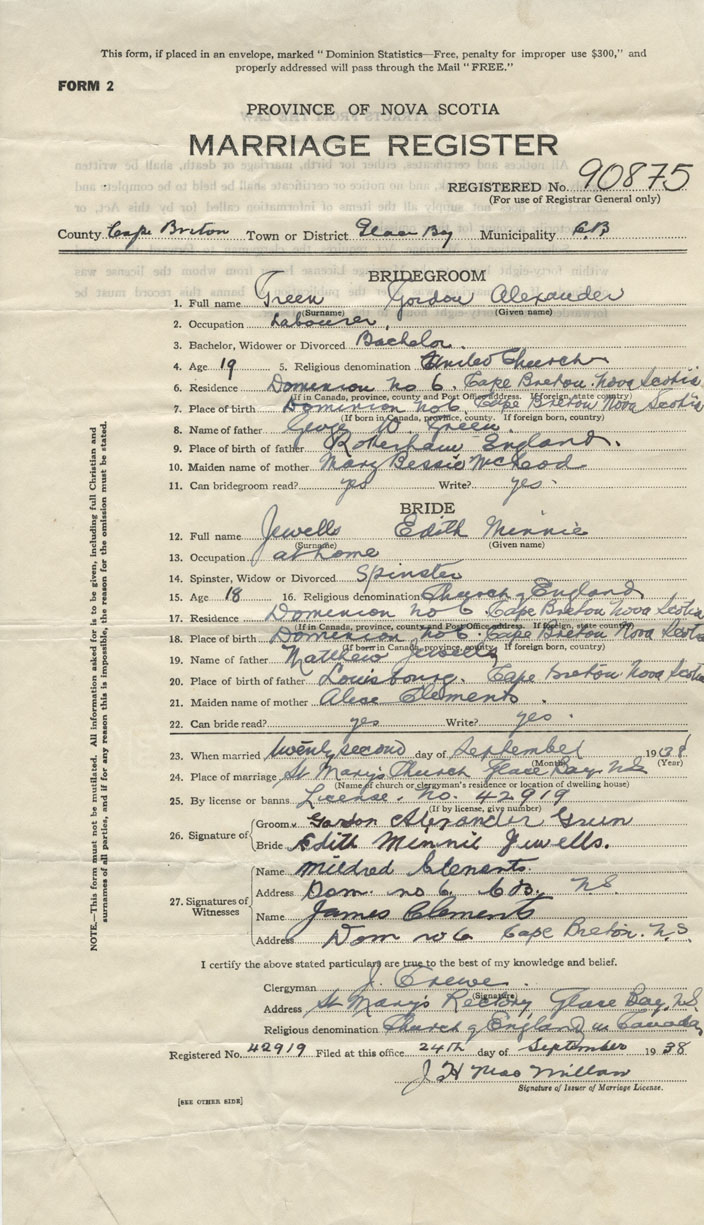 This form, if placed in an envelope, marked "Dominion Statistics—Free, penalty for improper use $300," and
properly addressed will pass through the Mail "FREE."
FORM 2
PROVINCE OF NOVA SCOTIA
MARRIAGE REGISTER
REGISTERED No. 90875
(For use of Registrar General only)
County Cape Breton Town or District Glace Bay Municipality C.B.
BRIDEGROOM
1. Full name Green Gordon Alexander
(Surname) (Given name)
2. Occupation Labourer
3. Bachelor, Widower or Divorced Bachelor.
4. Age 19 5. Religious denomination United Church
6. Residence Dominion no 6. Cape Breton Nova Scotia
(If in Canada, province, county and Post Office address. If foreign, state country)
7. Place of birth Dominion no 6. Cape Breton Nova Scotia
(If born in Canada, province, county. If foreign born, country)
8. Name of father George W. Green.
9. Place of birth of father Rotherham England.
10. Maiden name of mother Mary Bessie McLeod
11. Can bridegroom read? yes Write? yes.
BRIDE
12. Full name Jewells Edith Minnie
(Surname) (Given name)
13. Occupation at home
14. Spinster, Widow or Divorced Spinster
15. Age 18 16. Religious denomination Church of England
17. Residence Dominion no 6 Cape Breton Nova Scotia
(If in Canada, province, county and Post Office address. If foreign, state country)
18. Place of birth Dominion no 6. Cape Breton Nova Scotia
(If born in Canada, province, county. If foreign born, country)
19. Name of father Matthew Jewells
20. Place of birth of father Louisbourg. Cape Breton Nova Scotia
21. Maiden name of mother Alise Clements.
22. Can bride read? yes Write? yes.
23. When married twenty second day of September 1938
(Month) (Year)
24. Place of marriage St Mary's Church Glace Bay, N.S.
(Name of church or clergyman's residence or location of dwelling house)
25. By license or banns License. No. 42919
(If by license, give number)
26. Signature of
Groom Gordon Alexander Green
Bride Edith Minnie Jewells.
27. Signatures of Witnesses
Name Mildred Clements.
Address Dom. no 6. C.B. N.S.
Name James Clements
Address Dom no 6 Cape Breton. N.S.
I certify the above stated particulars are true to the best of my knowledge and belief.
Clergyman J. Crewe.
(Signature)
Address St Mary's Rectory Glace Bay, N.S.
Religious denomination Church of England in Canada
Registered No. 42919 Filed at this office 24th day of September 1938
J H MacMillan
Signature of Issuer of Marriage License.
[SEE OTHER SIDE]
NOTE.—This form must not be mutilated. All information asked for is to be given, including full Christian and
surnames of all parties, and if for any reason this is impossible, the reason for the omission must be stated.